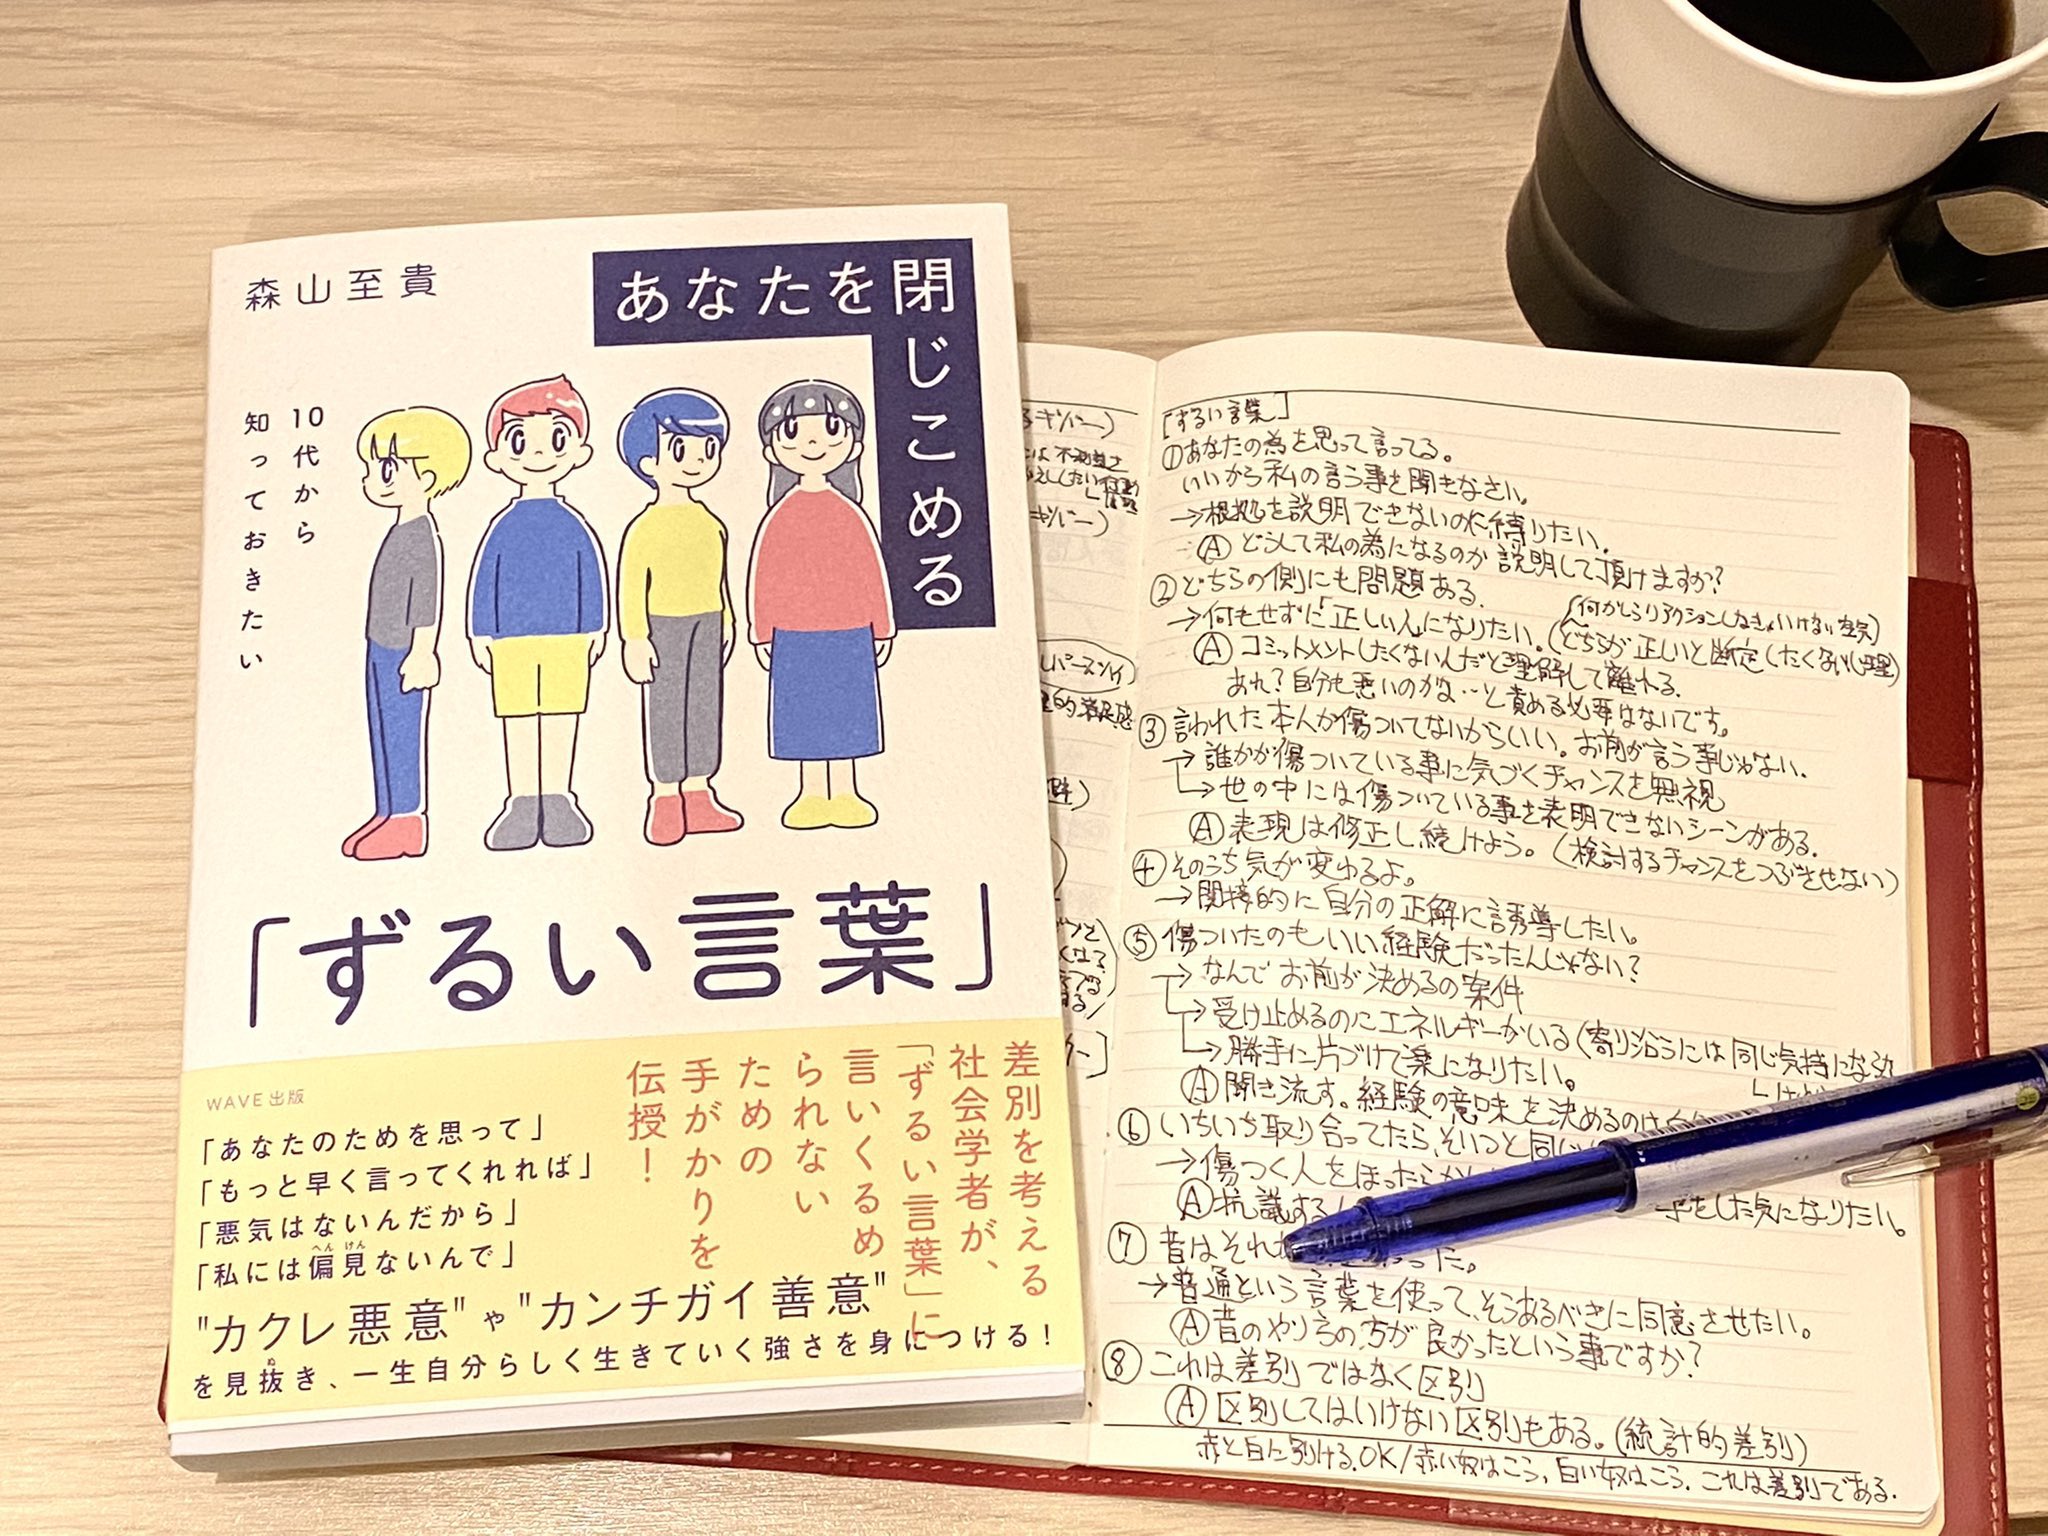 森山至貴
あなたを閉じこめる
10代から
知っておきたい
「ずるい言葉」
差別を考える
社会学者が、
「ずるい言葉」に
言いくるめ
られない
ための
手がかりを
伝授！
WAVE出版
「あなたのためを思って」
「もっと早く言ってくれれば」
「悪気はないんだから」
「私には偏見ないんで」
"カクレ悪意"や"カンチガイ善意"
を見抜き、一生自分らしく生きていく強さを身につける！
[ずるい言葉]
①あなたの為を思って言ってる。
いいから私の言う事を聞きなさい。
→根拠を説明できないのに縛りたい。
Ⓐどうして私の為になるのか説明して頂けますか？
②どちらの側にも問題ある。
→何もせずに「正しい人」になりたい。(どちらが正しいと断定したくない心理)
(何かしらリアクションしなきゃいけない空気)
Ⓐコミットメントしたくないんだと理解して離れる。
あれ？自分も悪いのかな…と責める必要はないです。
③言われた本人が傷ついてないからいい。お前が言う事じゃない。
→誰かが傷ついている事に気づくチャンスを無視
→世の中には傷ついている事を表明できないシーンがある。
Ⓐ表現は修正し続けよう。(検討するチャンスをつぶさせない)
④そのうち気が変わるよ。
→間接的に自分の正解に誘導したい。
⑤傷ついたのもいい経験だったんじゃない？
→なんでお前が決めるの案件
→受け止めるのにエネルギーがいる(寄り沿うには同じ気持になる
→勝手に片づけて楽になりたい。
Ⓐ聞き流す。経験の意味を決めるのは
⑥いちいち取り合ってたら、そいつと同じ
→傷つく人をほったらか
をした気になりたい。
Ⓐ抗議する
⑦昔はそれ
った。
→普通という言葉を使って、そうあるべきに同意させたい。
Ⓐ昔のやり方の方が良かったという事ですか？
⑧これは差別ではなく区別
Ⓐ区別してはいけない区別もある。(統計的差別)
赤と白に別ける。OK/赤い奴はこう、白い奴はこう。これは差別である。